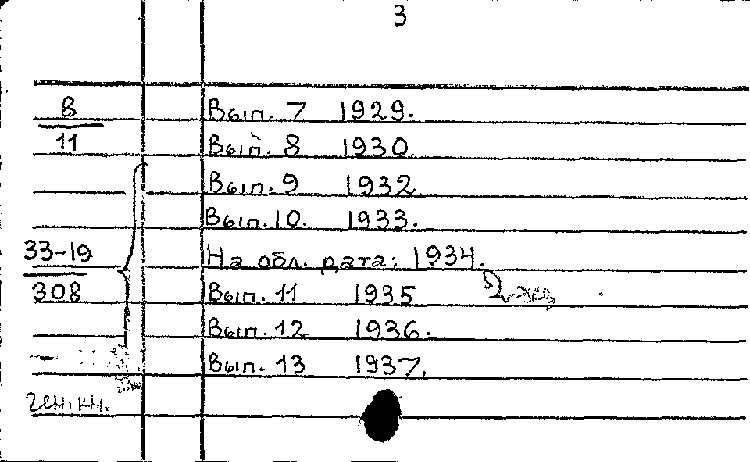 3
В Вып. 7 1929.
11 Вып. 8 1930
Вып. 9 1932
Вып. 10. 1933.
33-19 На обл. дата: 1934.
308 Вып. 11 1935
Вып. 12 1936.
Вып. 13 1937.